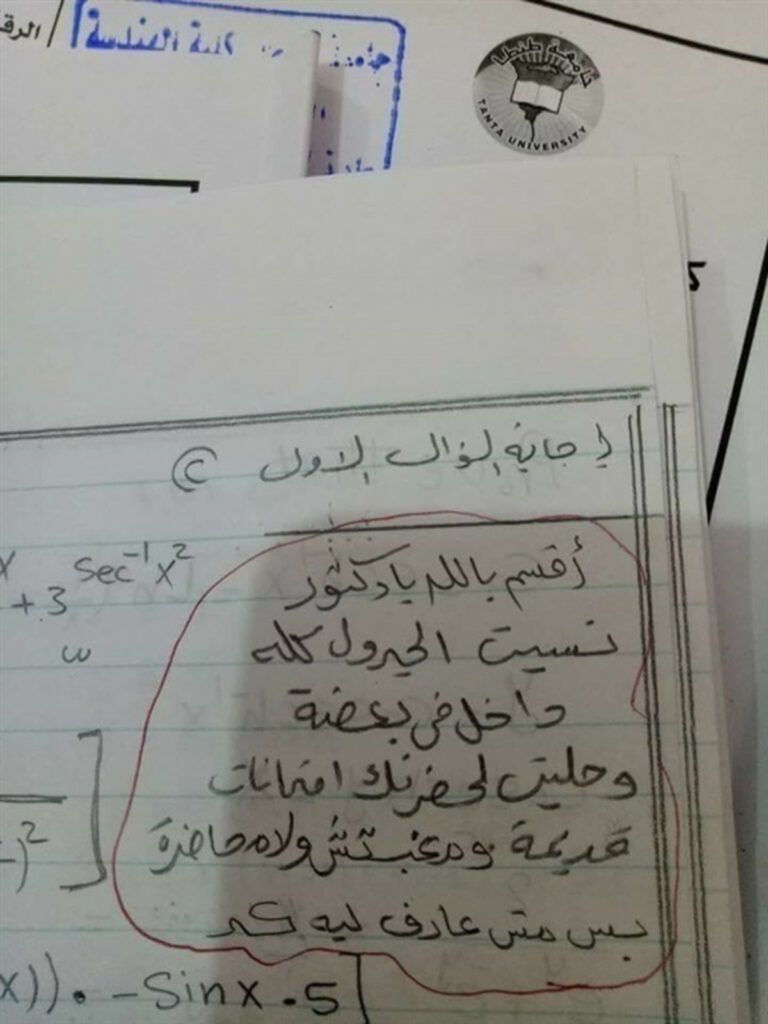 كلية الهندسة
جامعة طنطا
TANTA UNIVERSITY
إجابة السؤال الاول (C
أقسم بالله يا دكتور
نسيت الجدول كله
داخل في بعضه
وحليت لحضرتك امتحانات
قديمة ومغبتش ولا محاضرة
بس مش عارف ليه كده
+ 3 sec⁻¹x²
x)) . - Sinx . 5